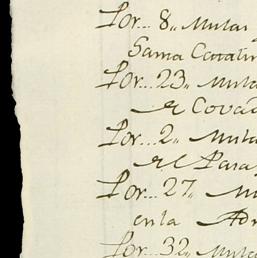 Por... 8,, Mulas
Santa Catalin
Por... 23,, Mula
el Cova
Por... 2,, Mula
el Para
Por... 27,, Mu
enla Adu
Por... 32,, Mula